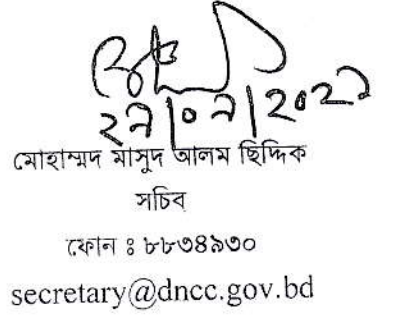 ২৯|০৯|২০২১
মোহাম্মদ মাসুদ আলম ছিদ্দিক
সচিব
ফোন ঃ ৮৮৩৪৯৩০
secretary@dncc.gov.bd